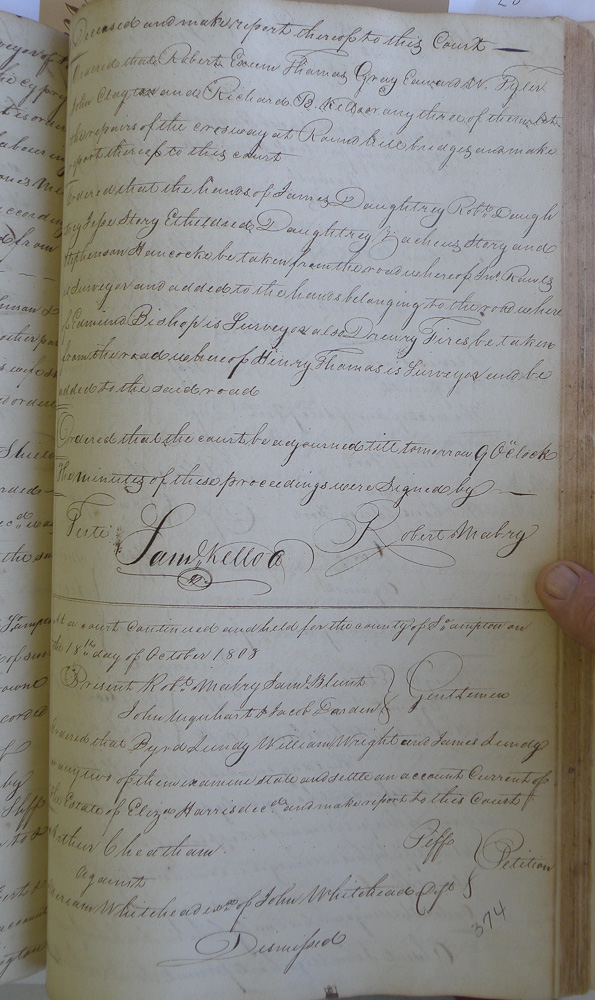 Deceased and make report thereof to this Court —
Ordered that Robert Exum Thomas Gray Edward N. Tyler
John Clayton and Richard B. Kello or any three of them let
the repairs of the crossway at Round hill bridges and make
report thereof to this court
Ordered that the hands of James Daughtrey Robt. Daugh
trey Jesse Story Etheldred Daughtrey Zacheus Story and
Stephenson Hancock be taken from the road whereof Jno. Rawls
is Surveyor and added to the hands belonging to the road where
of Bishop is Surveyor also Drewry Fires be taken
from the road whereof Henry Thomas is Surveyor and be
added to the said road
Ordered that the court be adjourned till tomorrow 9 OClock
The minutes of these proceedings were Signed by —
Robert Mabry
Teste
Saml. Kello
At a court Continued and held for the county of So. ampton on
the 18th day of October 1803
Present Robt. Mabry Saml. Blunt
John Urquhart & Jacob Darden } Gentlemen
Ordered that Byrd Lundy William Wright and James Lundy
or any two of them examine state and settle an account Current of
the Estate of Eliza Harris decd. and make report to this Court
Arthur Cheatham Piff } Petition
Against
Whitehead of John Whitehead
374
Dismissed